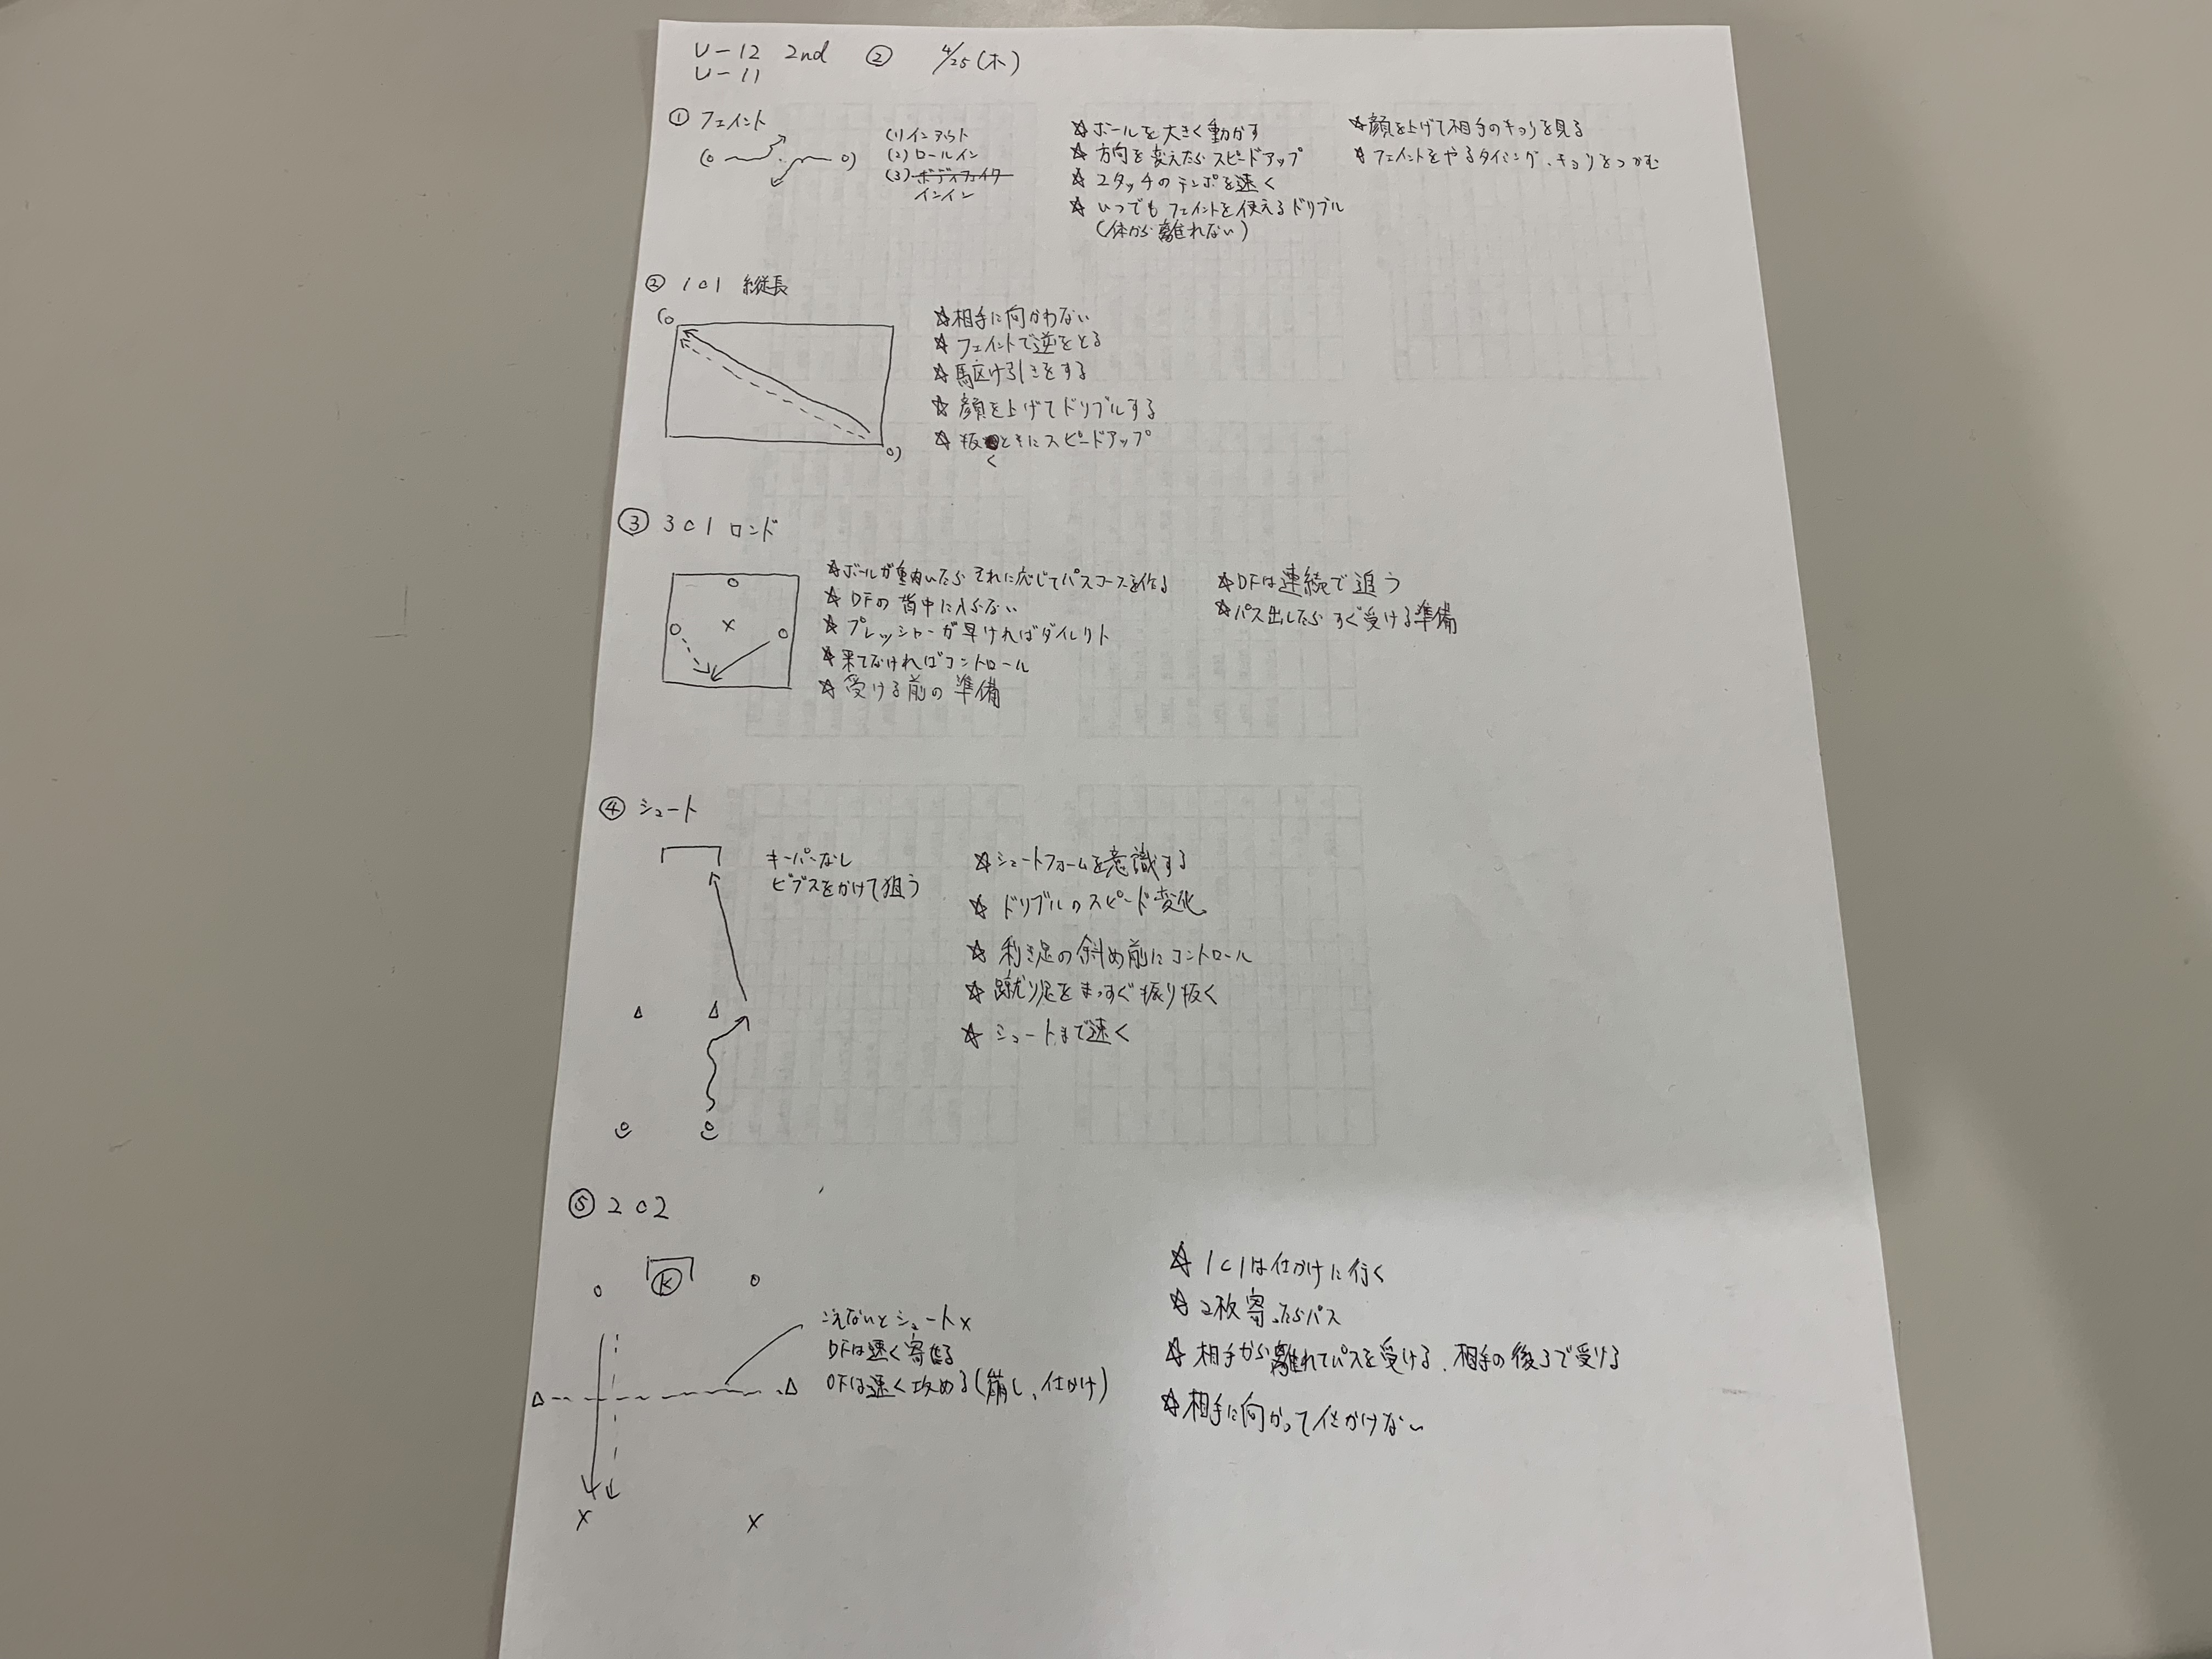 U-12 2nd ② 4/25(木)
U-11
① フェイント
(1)インアウト
(2)ロールイン
(3)ボディフェイク
インイン
☆ボールを大きく動かす
☆方向を変えたらスピードアップ
☆2タッチのテンポを速く
☆いつでもフェイントを使えるドリブル
(体から離れない)
☆顔を上げて相手のキョリを見る
☆フェイントをやるタイミング、キョリをつかむ
② 1c1 縦長
☆相手に向かわない
☆フェイントで逆をとる
☆駆け引きをする
☆顔を上げてドリブルする
☆抜くときにスピードアップ
③ 3c1 ロンド
☆ボールが動いたらそれに応じてパスコースを作る
☆DFの背中に入らない
☆プレッシャーが早ければダイレクト
☆来てなければコントロール
☆受ける前の準備
☆DFは連続で追う
☆パス出したらすぐ受ける準備
④ シュート
キーパーなし
ビブスをかけて狙う
☆シュートフォームを意識する
☆ドリブルのスピード変化
☆利き足の斜め前にコントロール
☆蹴り足をまっすぐ振り抜く
☆シュートまで速く
⑤ 2c2
K
こえないとシュートx
DFは速く寄せる
OFは速く攻める(崩し、仕かけ)
☆1c1は仕かけに行く
☆2枚寄ったらパス
☆相手から離れてパスを受ける、相手の後ろで受ける
☆相手に向かって仕かけない